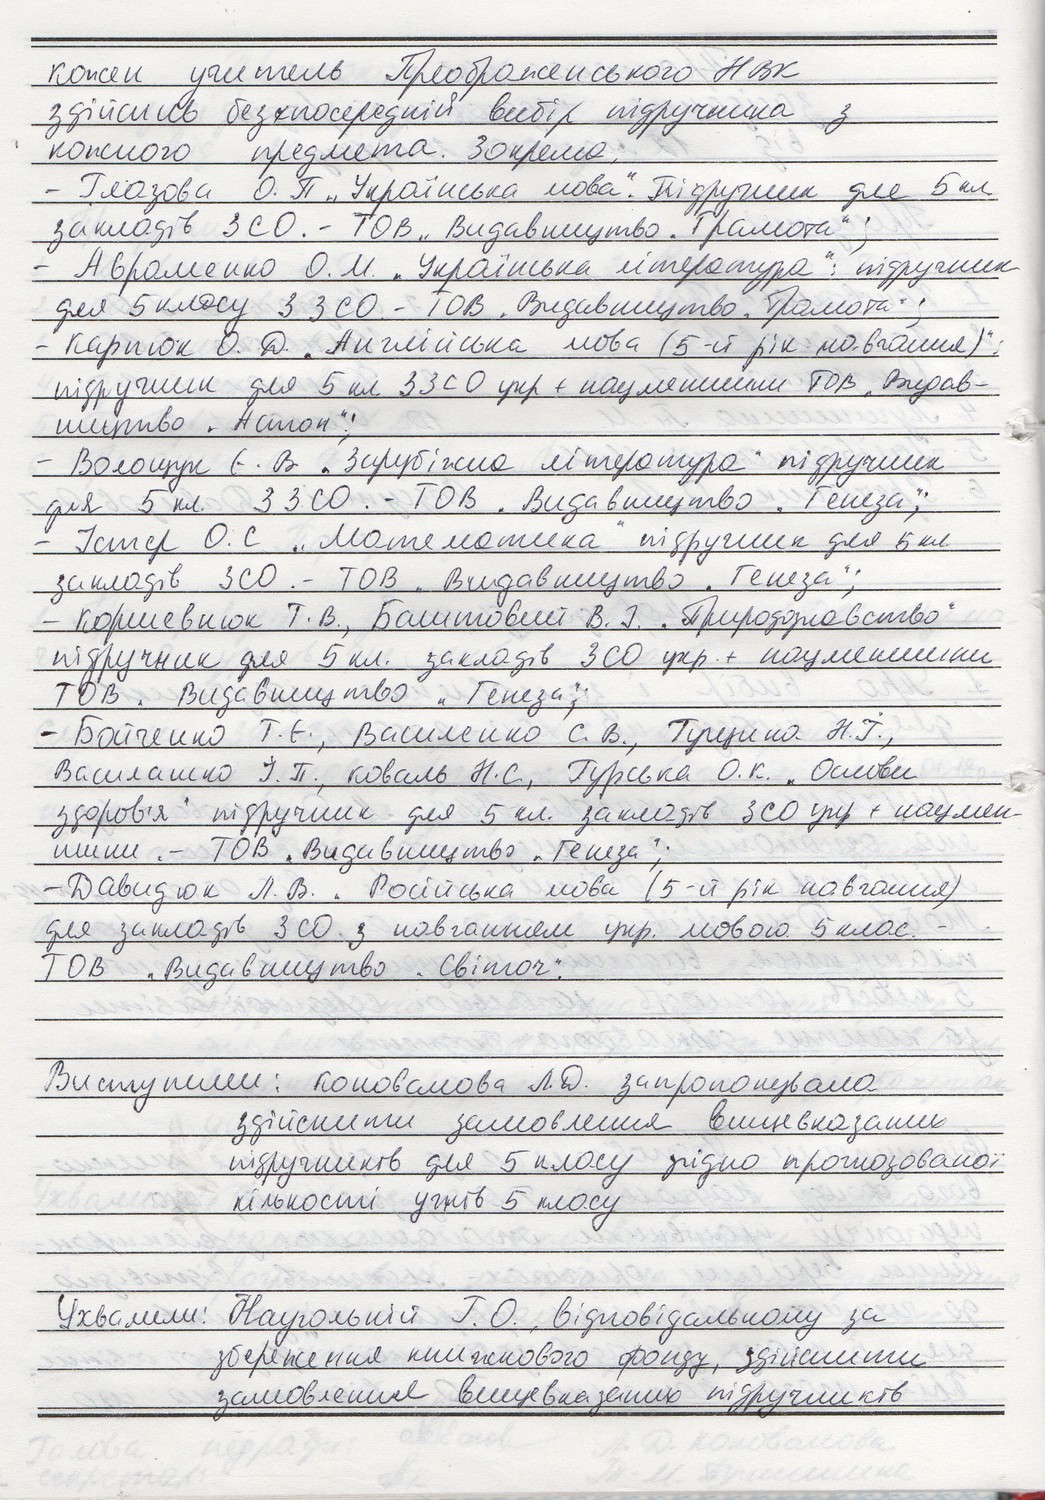 кожен учитель Преображенського НВК
здійснив безпосередній вибір підручника з
кожного предмета. Зокрема,
- Глазова О.П „Українська мова". Підручник для 5 кл
закладів ЗСО. - ТОВ „Видавництво „Грамота";
- Авраменко О.М. „Українська література": підручник
для 5 класу ЗЗСО. - ТОВ „Видавництво „Грамота";
- Карпюк О.Д. „Англійська мова (5-й рік навчання)":
підручник для 5 кл ЗЗСО укр + нацменшини ТОВ „Видав-
ництво „Астон";
- Волощук Є.В. „Зарубіжна література" підручник
для 5 кл. ЗЗСО. - ТОВ „Видавництво „Генеза";
- Істер О.С „Математика" підручник для 5 кл
закладів ЗСО. - ТОВ „Видавництво „Генеза";
- Коршевнюк Т.В., Баштовий В.І. „Природознавство"
підручник для 5 кл. закладів ЗСО укр. + нацменшини
ТОВ „Видавництво „Генеза";
- Бойченко Т.Є., Василенко С.В., Гущина Н.І.,
Василашко І.П., Коваль Н.С., Гурська О.К. „Основи
здоров'я" підручник для 5 кл. закладів ЗСО укр + нацмен-
шини. - ТОВ „Видавництво „Генеза";
- Давидюк Л.В. „Російська мова (5-й рік навчання)
для закладів ЗСО з навчанням укр. мовою 5 клас. -
ТОВ „Видавництво „Світоч".
Виступили: Коновалова Л.Д. запропонувала
здійснити замовлення вищевказаних
підручників для 5 класу згідно прогнозованої
кількості учнів 5 класу
Ухвалили: Наугольній Г.О., відповідальному за
збереження книжкового фонду, здійснити
замовлення вищевказаних підручників